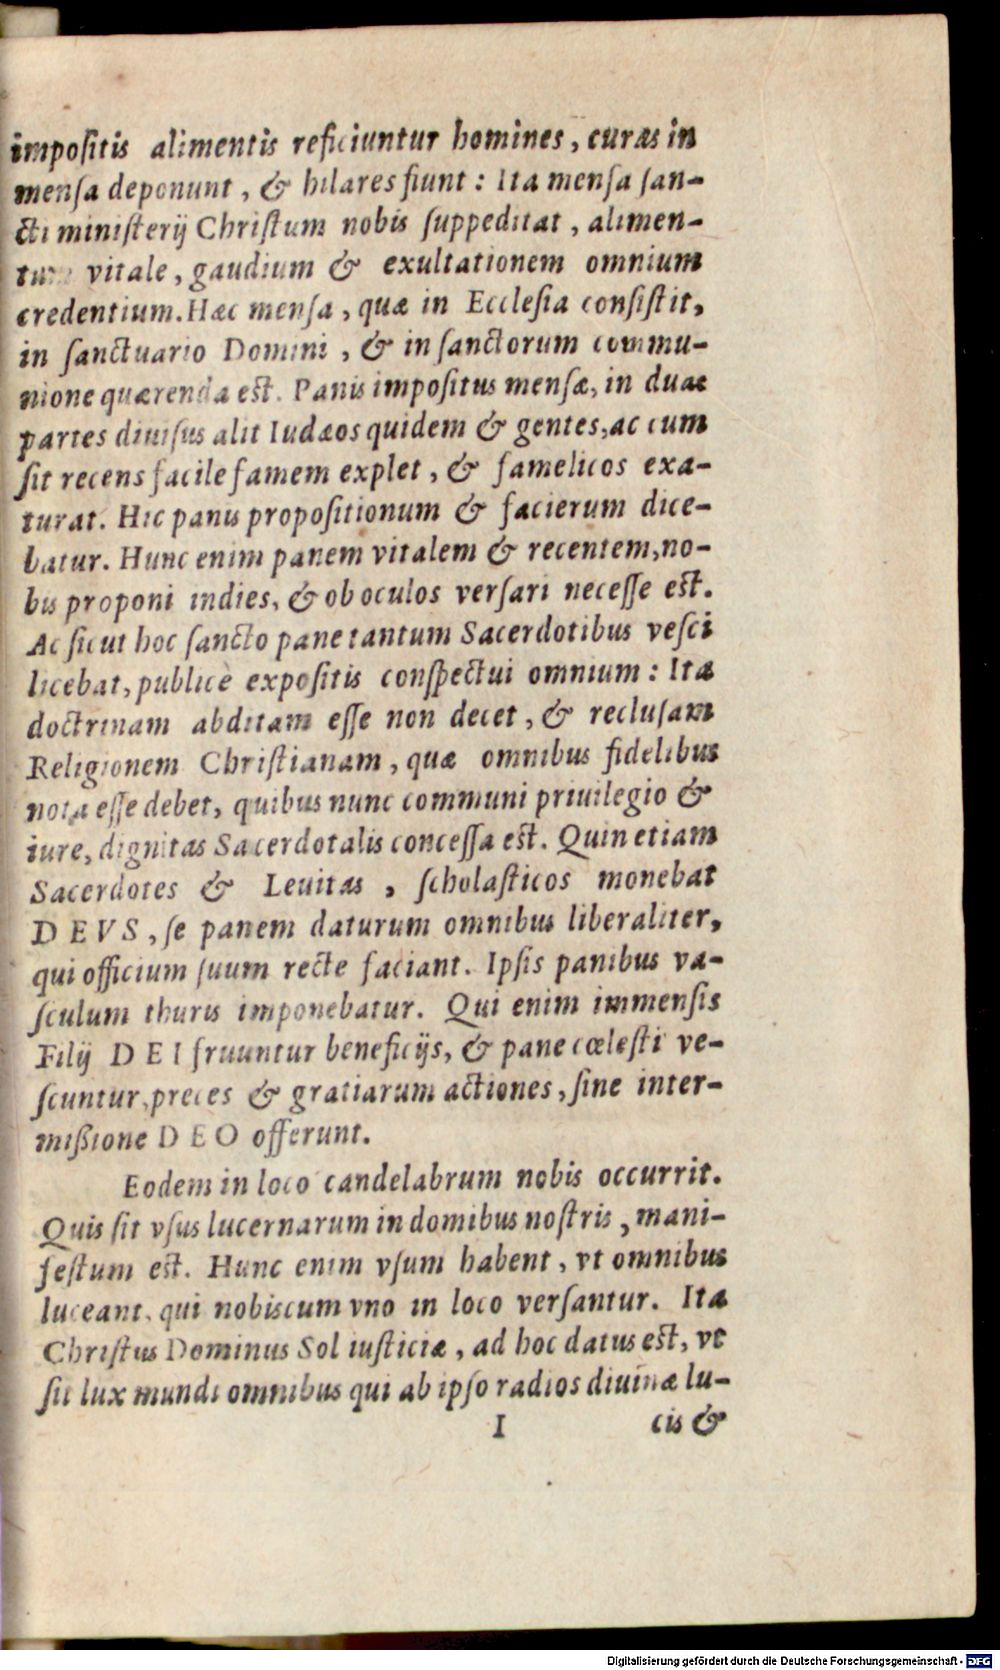 impoſitis alimentis reficiuntur homines, curas in
menſa deponunt, & hilares fiunt: Ita menſa ſan-
cti miniſterij Chriſtum nobis ſuppeditat, alimen-
tum vitale, gaudium & exultationem omnium
credentium. Hæc menſa, quæ in Eccleſia conſiſtit,
in ſanctuario Domini, & in ſanctorum commu-
nione quærenda est. Panis impoſitus menſæ, in duae
partes diuiſus alit Iudæos quidem & gentes, ac cum
ſit recens facile famem explet, & famelicos exa-
turat. Hic panis propoſitionum & facierum dice-
batur. Hunc enim panem vitalem & recentem, no-
bis proponi indies, & ob oculos verſari neceſſe est.
Ac ſicut hoc ſancto pane tantum Sacerdotibus veſci
licebat, publicè expoſitis conſpectui omnium: Ita
doctrinam abditam eſſe non decet, & recluſam
Religionem Chriſtianam, quæ omnibus fidelibus
nota eſſe debet, quibus nunc communi priuilegio &
iure, dignitas Sacerdotalis conceſſa est. Quin etiam
Sacerdotes & Leuitas, ſcholaſticos monebat
DEVS, ſe panem daturum omnibus liberaliter,
qui officium ſuum recte faciant. Ipſis panibus va-
ſculum thuris imponebatur. Qui enim immenſis
Filij DEI fruuntur beneficijs, & pane cœleſti ve-
ſcuntur, preces & gratiarum actiones, ſine inter-
mißione DEO offerunt.
Eodem in loco candelabrum nobis occurrit.
Quis ſit vſus lucernarum in domibus noſtris, mani-
feſtum est. Hunc enim vſum habent, vt omnibus
luceant, qui nobiscum vno in loco verſantur. Ita
Chriſtus Dominus Sol iuſticiæ, ad hoc datus est, vt
ſit lux mundi omnibus qui ab ipſo radios diuinæ lu-
I cis &
Digitalisierung gefördert durch die Deutsche Forschungsgemeinschaft - DFG